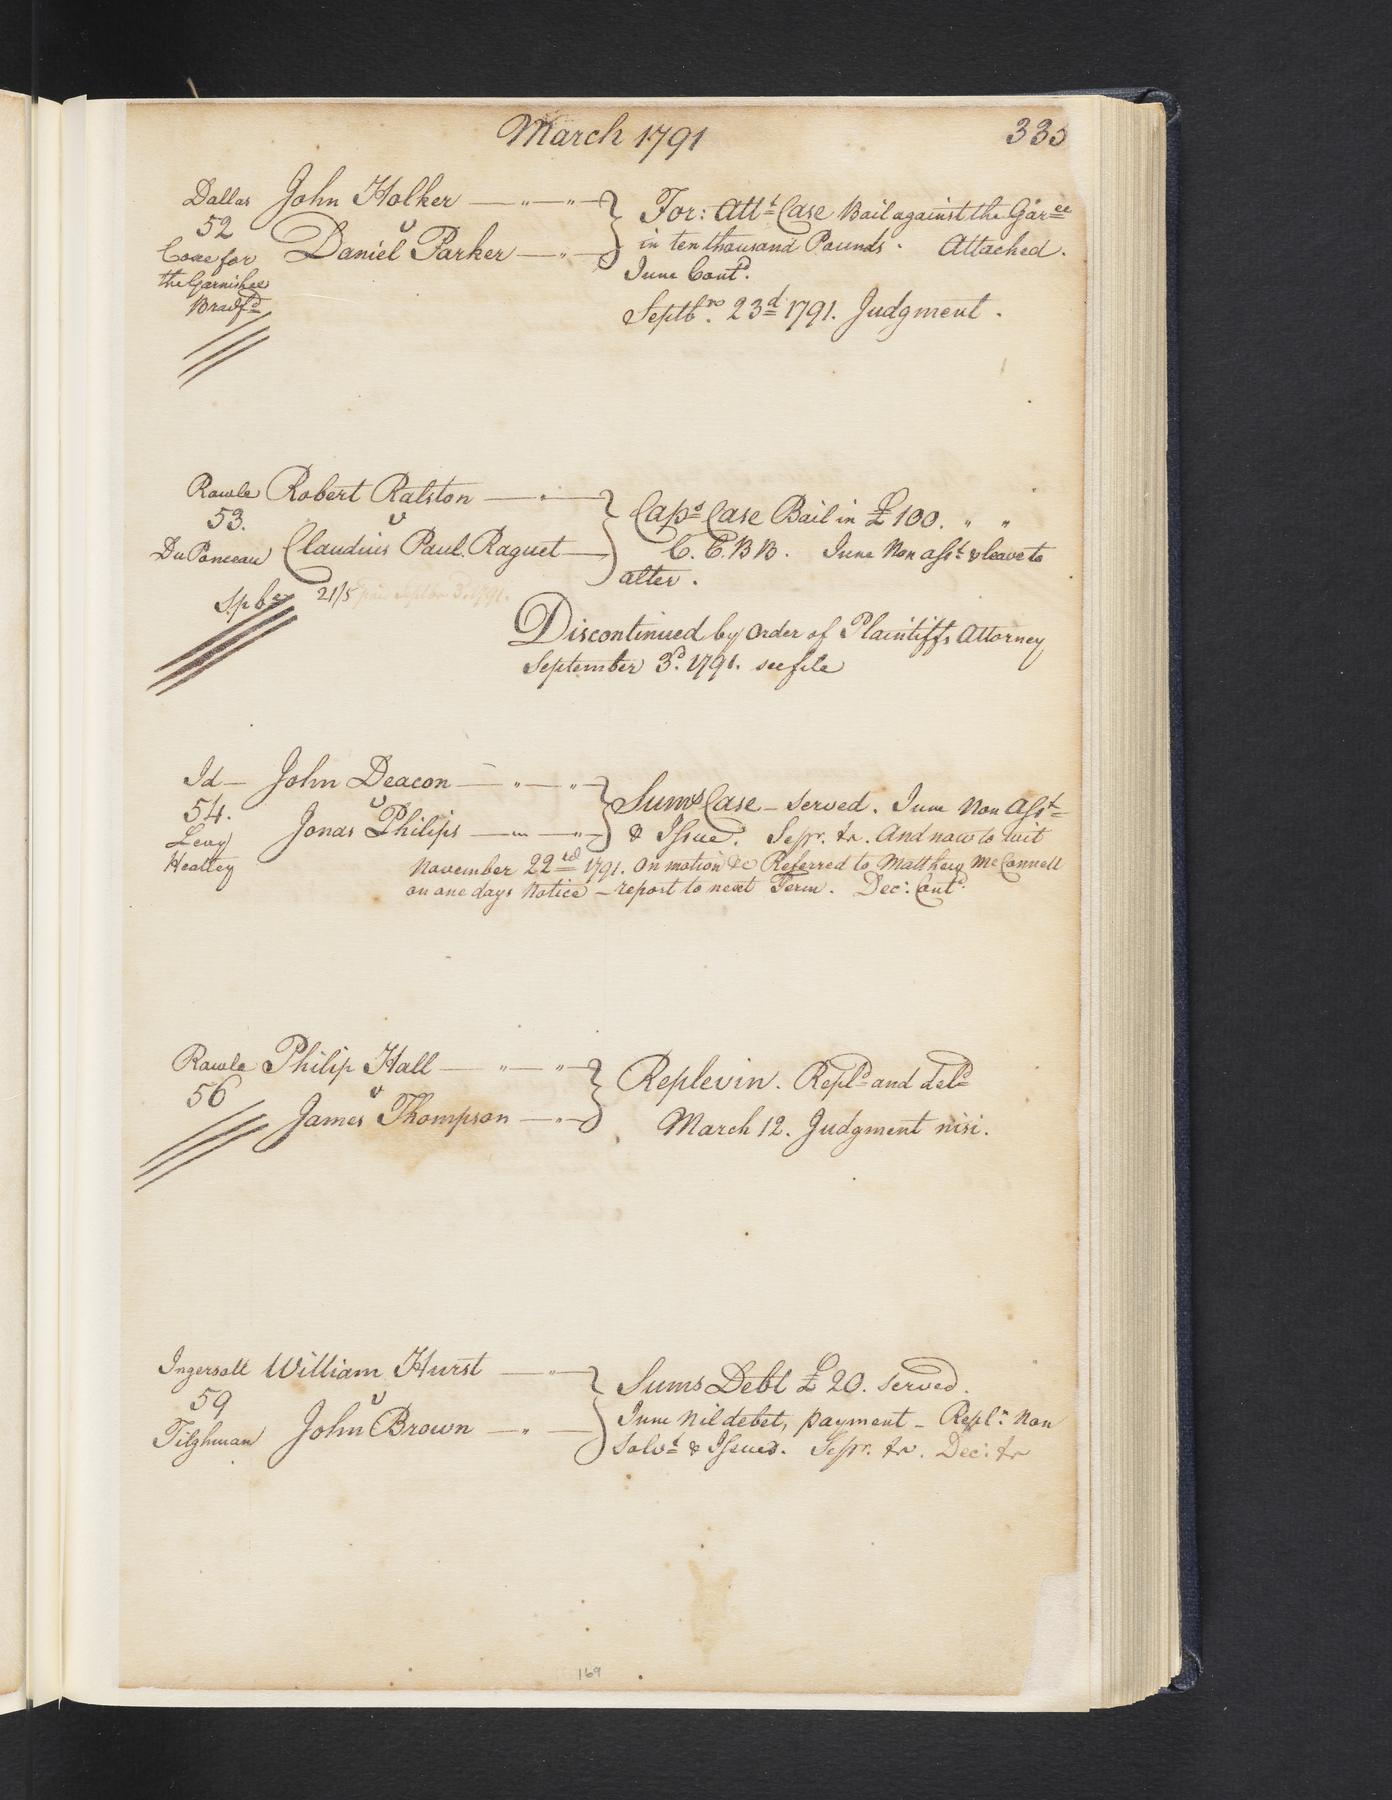 March 1791 335
Dallas John Holker } For: Attt Case Bail against the Garee
52 v
Coxe for Daniel Parker in ten thousand Pounds. Attached.
the Garnishee June Contd.
Bradfd Septbro. 23d 1791. Judgment.
Rawle Robert Ralston } Caps Case Bail in £100. " "
53. v
DuPonceau Claudius Paul Raguet C.C.BB. June Non asst & leave to
alter.
Sp be 21/5 paid Septbr 3. 1791.
Discontinued by order of Plaintiffs Attorney
September 3d. 1791. see file
Id— John Deacon } Sums Case — Served. June Non Asst
54. v
Levy Jonas Philips & Issue. Sepr. tr. And now to wit
Heatley November 22nd 1791. On motion &c Referred to Matthew McConnell
on one days Notice — report to next Term. Dec: Contd.
Rawle Philip Hall } Replevin. Repld and deld
56 v
James Thompson March 12. Judgment nisi.
Ingersoll William Hurst } Sums Debt £20. Served.
59 v
Tilghman John Brown June Nil debet, payment — Repln. Non
Solvt & Issues. Sepr. tr. Dec: tr
169